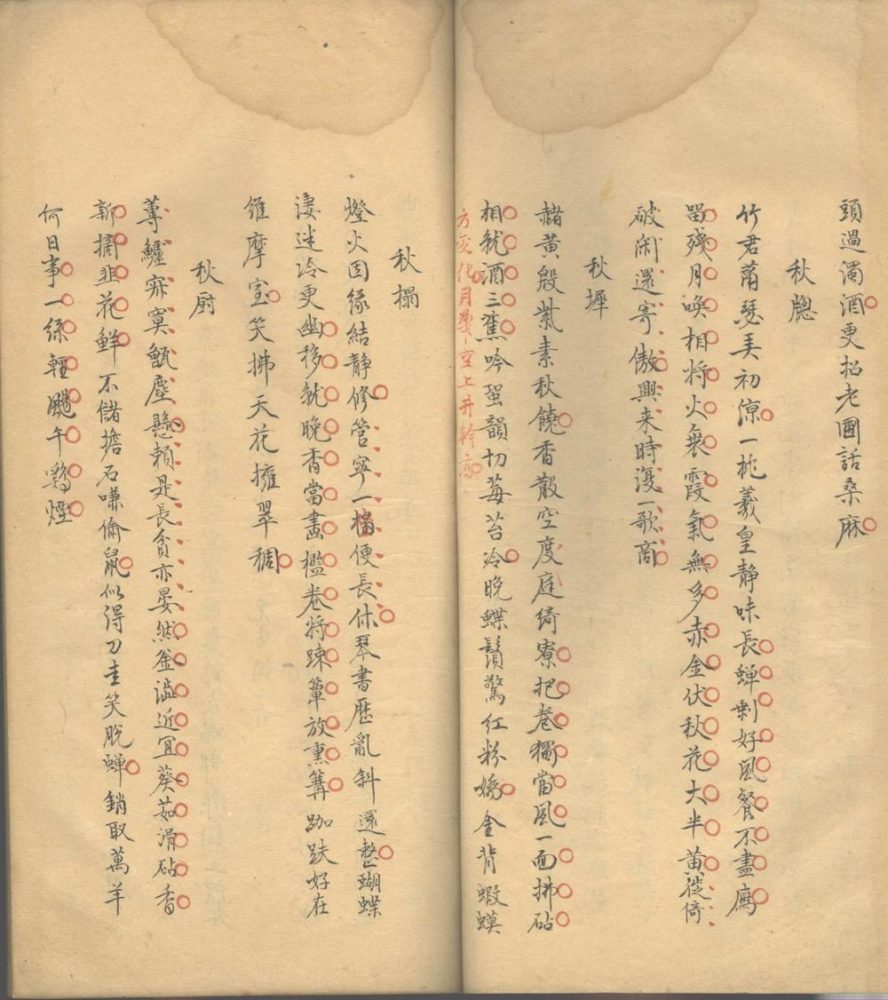 頭過濁酒更招老圃話桑麻
秋牕
竹君蕭瑟美初涼一枕羲皇靜味長蟬剩好風餐不盡鴈
留殘月喚相將火衰霞氣無多赤金伏秋花大半黃徙倚
破閑還寄傲興来時復一歌商
秋墀
赭黃殷紫素秋饒香散空庭綺寮把卷獨當風一面拂砧
相就酒三蕉吟蛩韻切莓苔冷晚蝶鬚驚紅粉嬌金背蝦蟆
方交化月上井幹
秋榻
燈火因緣結靜修管寧一榻便長休琴書歷亂斜還整蝴蝶
淒迷冷更幽移就晚香當畫檻卷將疎簟放熏篝跏趺好在
維摩室笑拂天花擁翠稠
秋廚
蓴鱸寂寞甑塵懸賴是長貧亦晏然釜溢近宜葵茹滑砧香
新摘韭花鮮不儲擔石嗛偷鼠似得刀圭笑脫蟬銷取萬羊
何日事一綠輕颺午鷄煙